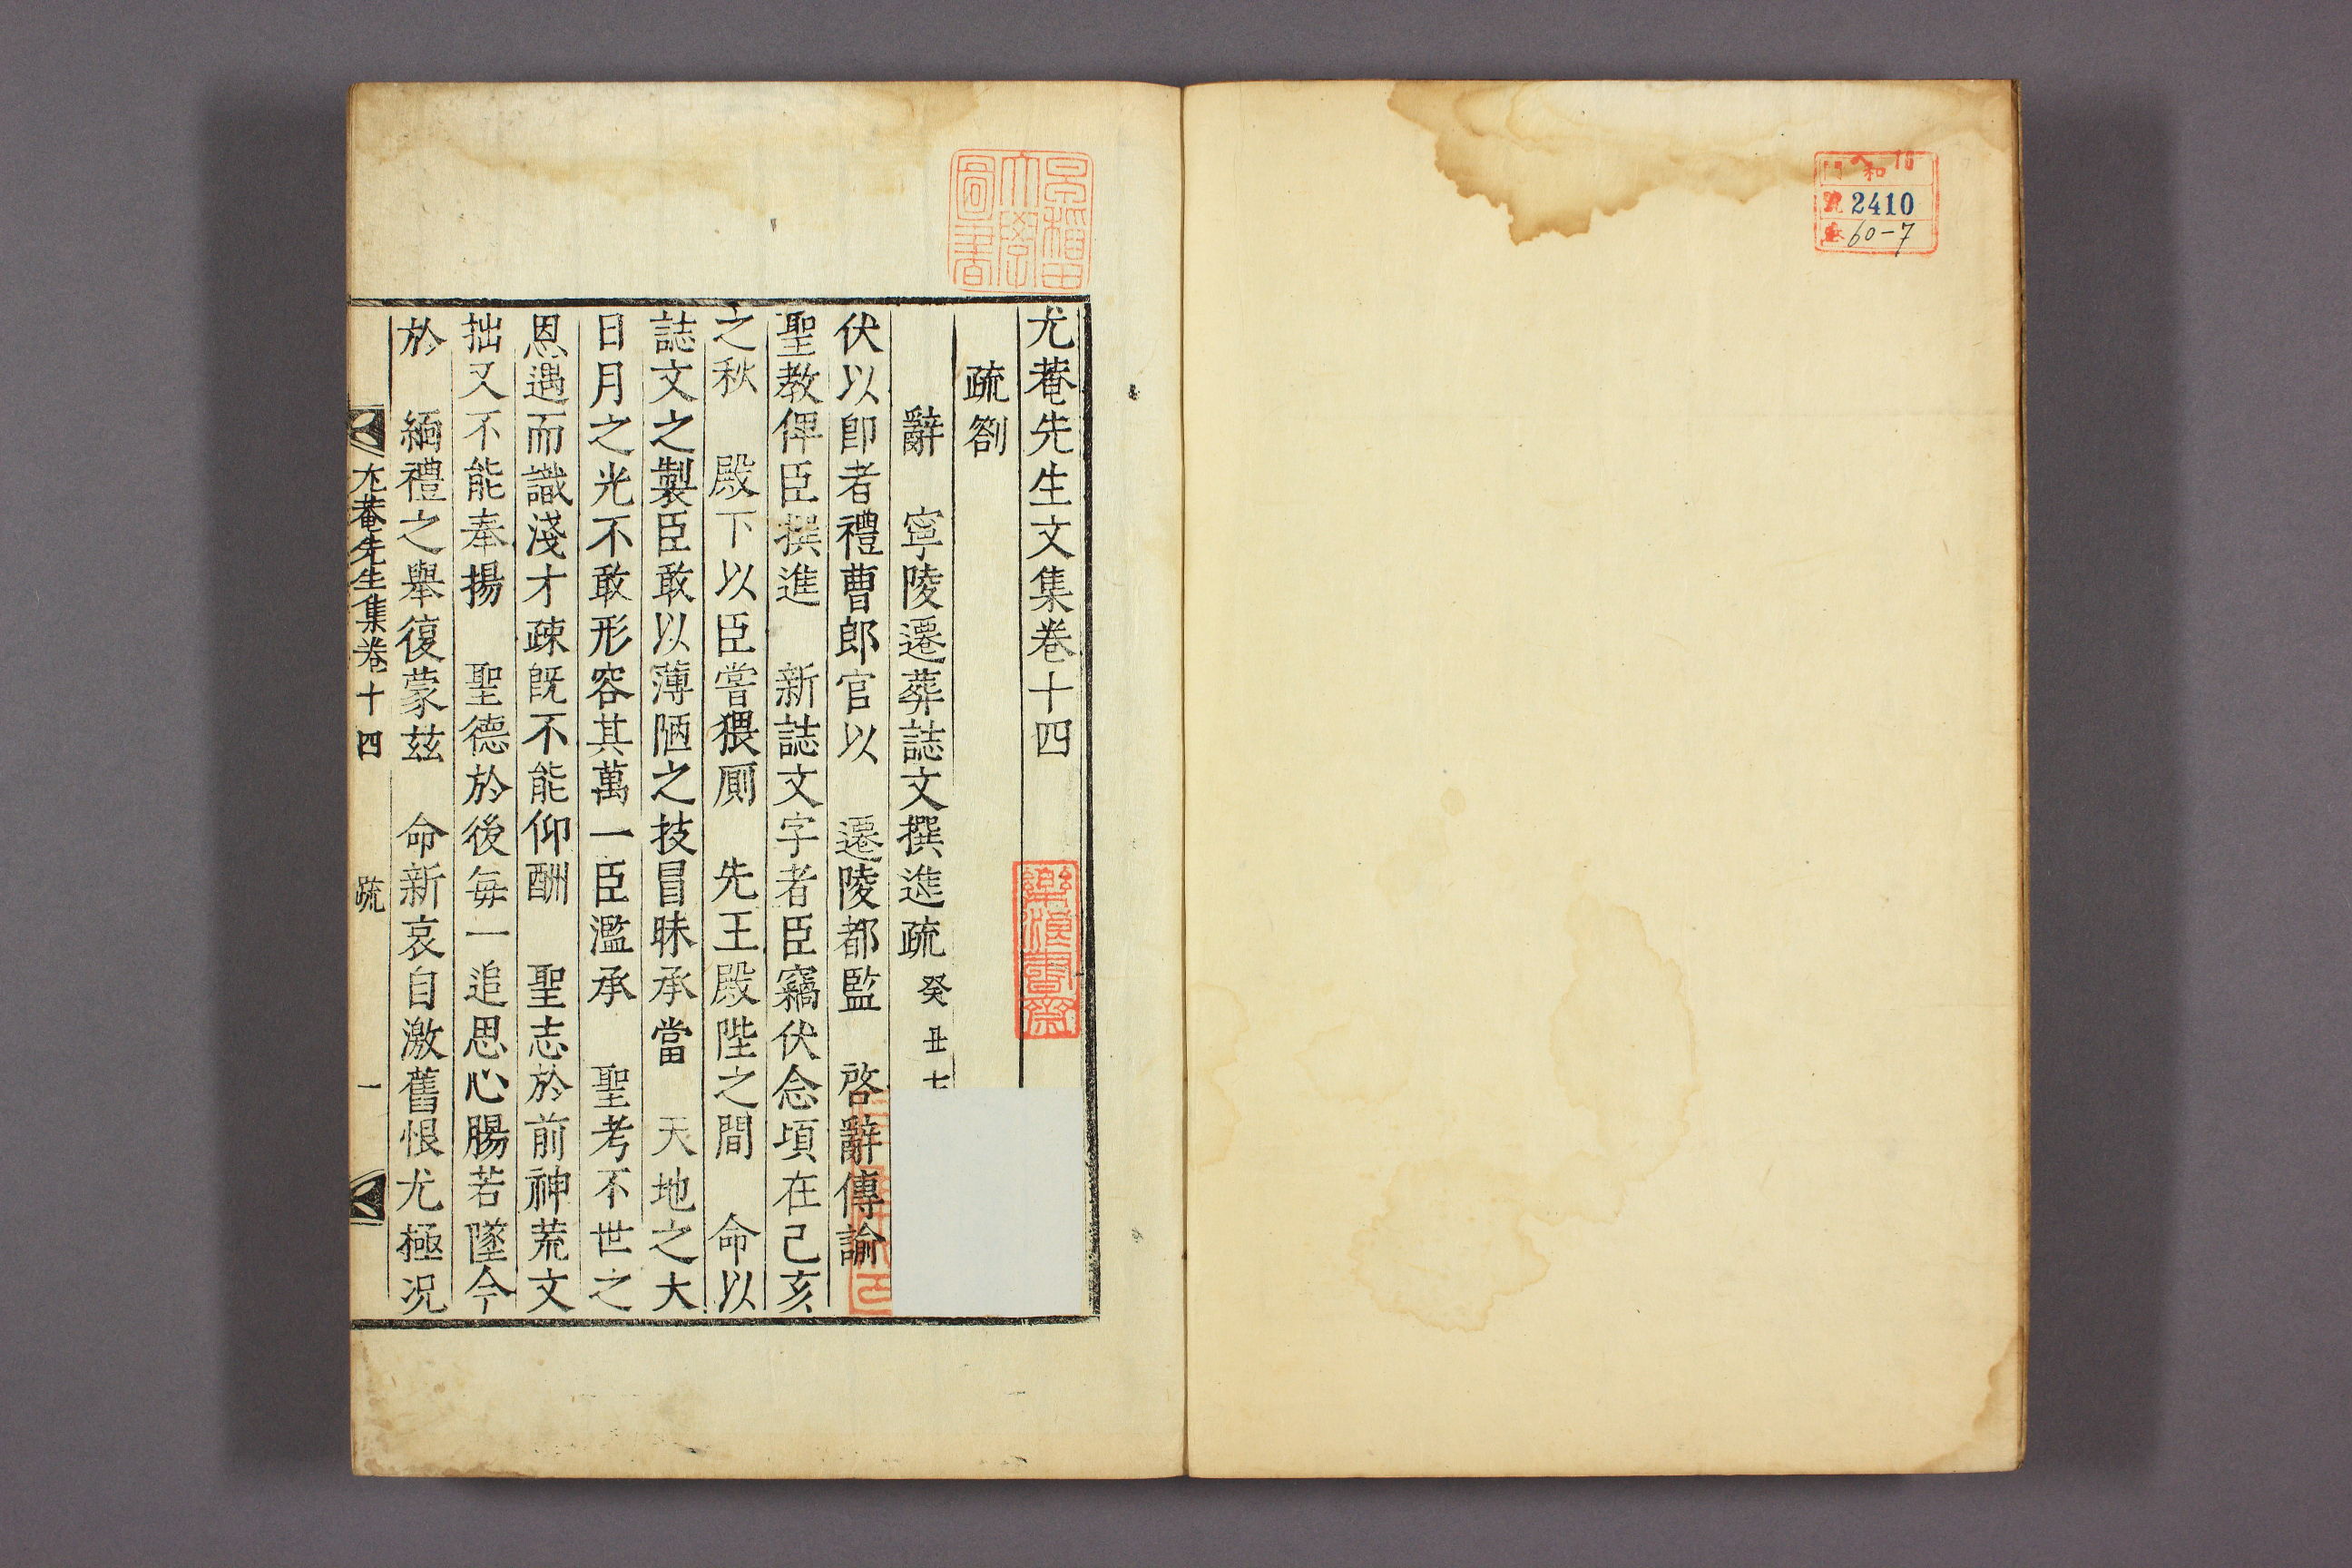 和 16
號 2410
60-7
早稲田大學圖書
尤菴先生文集卷十四
樂浪書齋
疏劄
辭 寧陵遷葬誌文撰進疏 癸丑七
伏以卽者禮曹郎官以 遷陵都監 啓辭傳諭
聖教俾臣撰進 新誌文字者臣竊伏念頃在己亥
之秋 殿下以臣嘗猥厠 先王殿陛之間 命以
誌文之製臣敢以薄陋之技冒昧承當 天地之大
日月之光不敢形容其萬一臣濫承 聖考不世之
恩遇而識淺才疎旣不能仰酬 聖志於前神荒文
拙又不能奉揚 聖德於後每一追思心膓若墜今
於 緬禮之舉復蒙玆 命新哀自激舊恨尤極况
尤菴先生集卷十四 疏 一